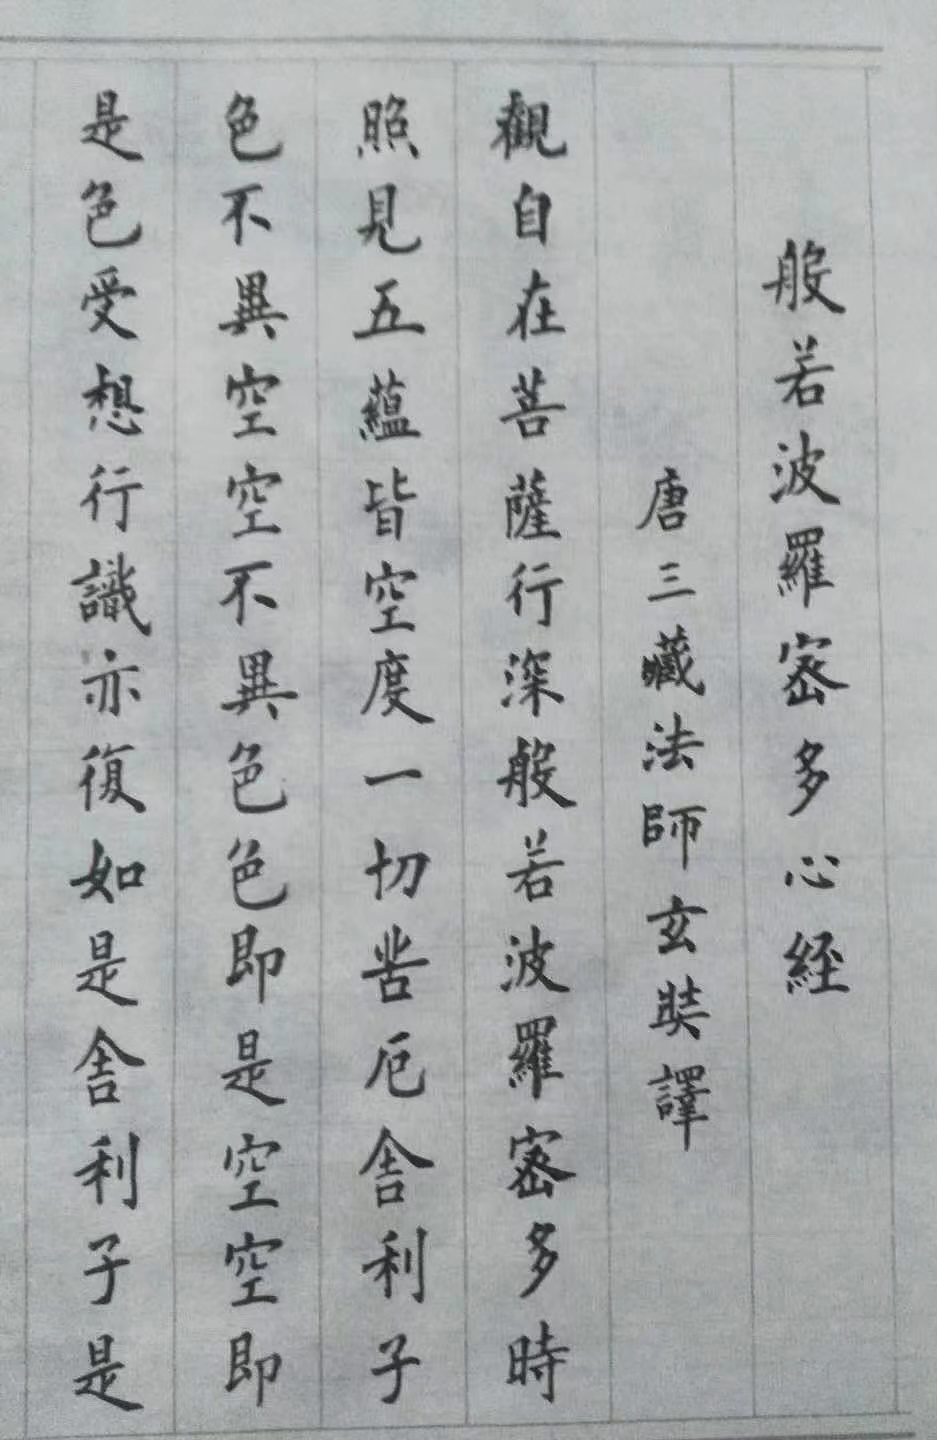 般若波羅蜜多心經
唐三藏法師玄奘譯
觀自在菩薩行深般若波羅蜜多時
照見五蘊皆空度一切苦厄舍利子
色不異空空不異色色即是空空即
是色受想行識亦復如是舍利子是